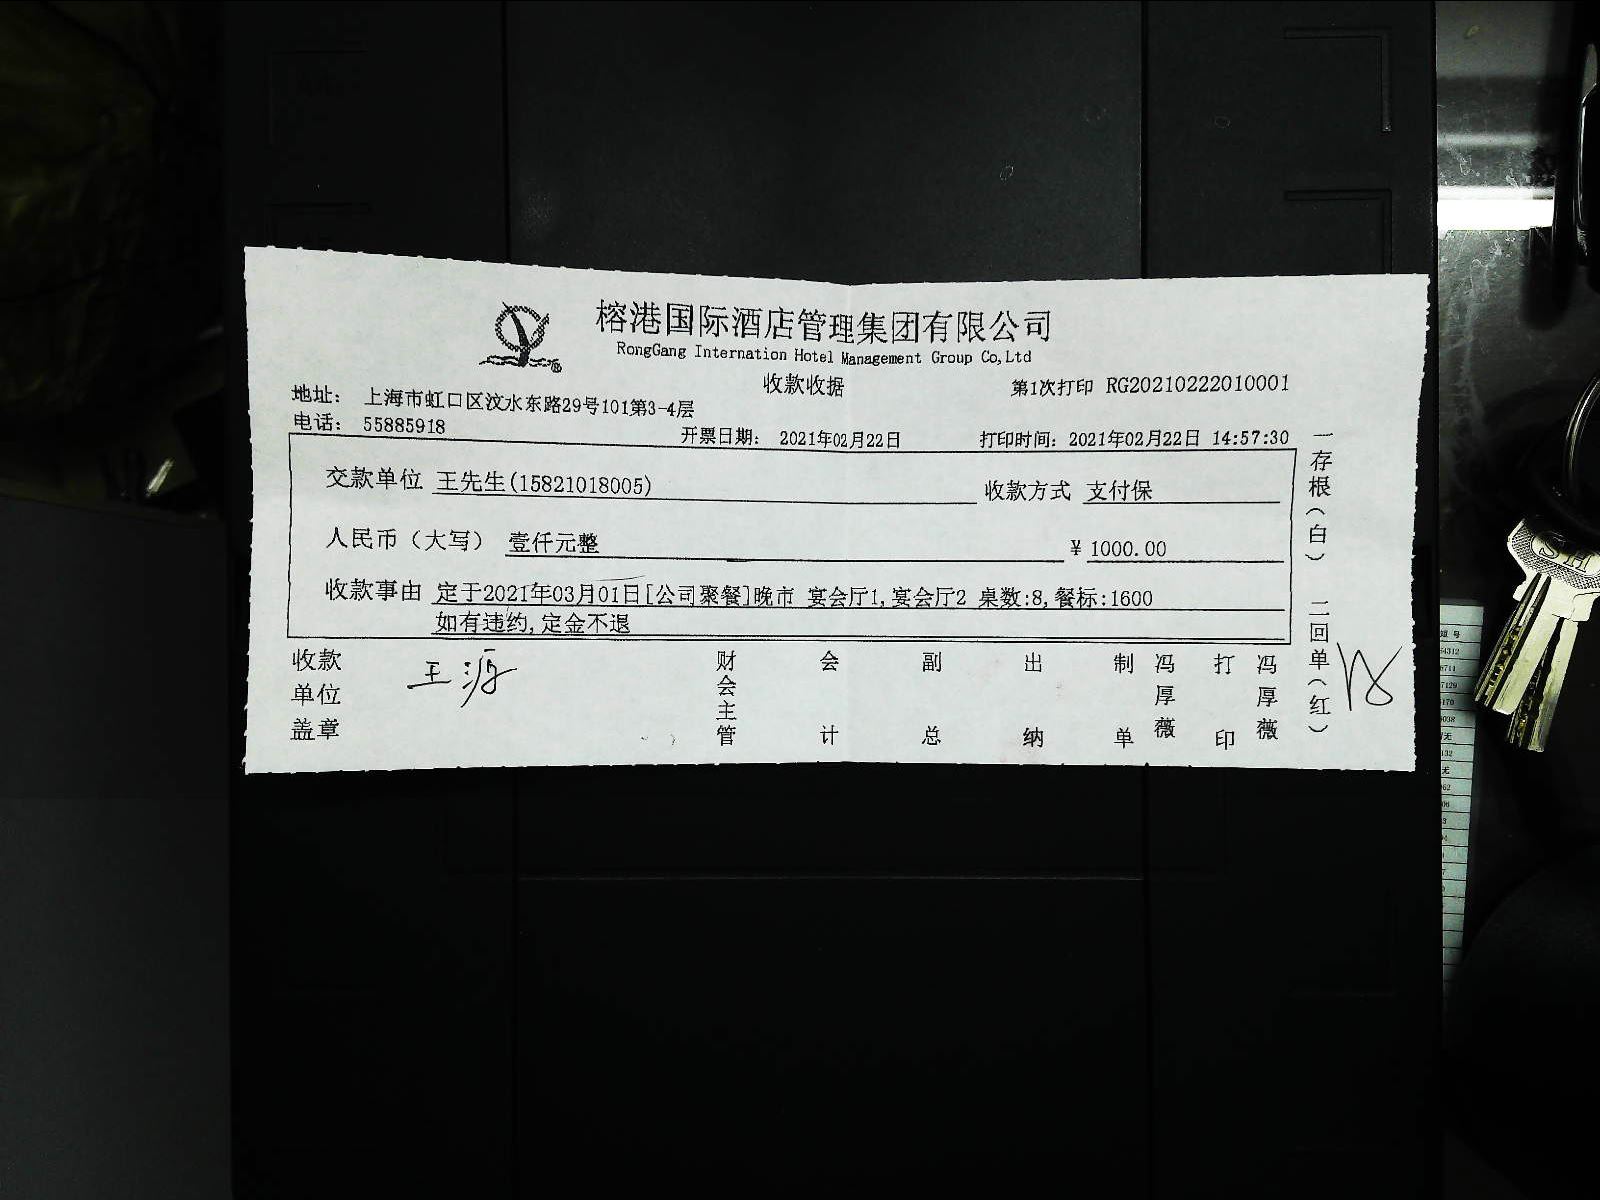 榕港国际酒店管理集团有限公司
RongGang Internation Hotel Management Group Co,Ltd
收款收据
第1次打印 RG20210222010001
地址： 上海市虹口区汶水东路29号101第3-4层
电话： 55885918
开票日期： 2021年02月22日
打印时间：2021年02月22日 14:57:30
交款单位 王先生(15821018005)
收款方式 支付保
人民币（大写） 壹仟元整
¥ 1000.00
收款事由 定于2021年03月01日[公司聚餐]晚市 宴会厅1,宴会厅2 桌数:8,餐标:1600
如有违约,定金不退
一存根（白） 二回单（红）
收款单位盖章
王源
财会主管
会计
副总
出纳
制单 冯厚薇
打印 冯厚薇
SH